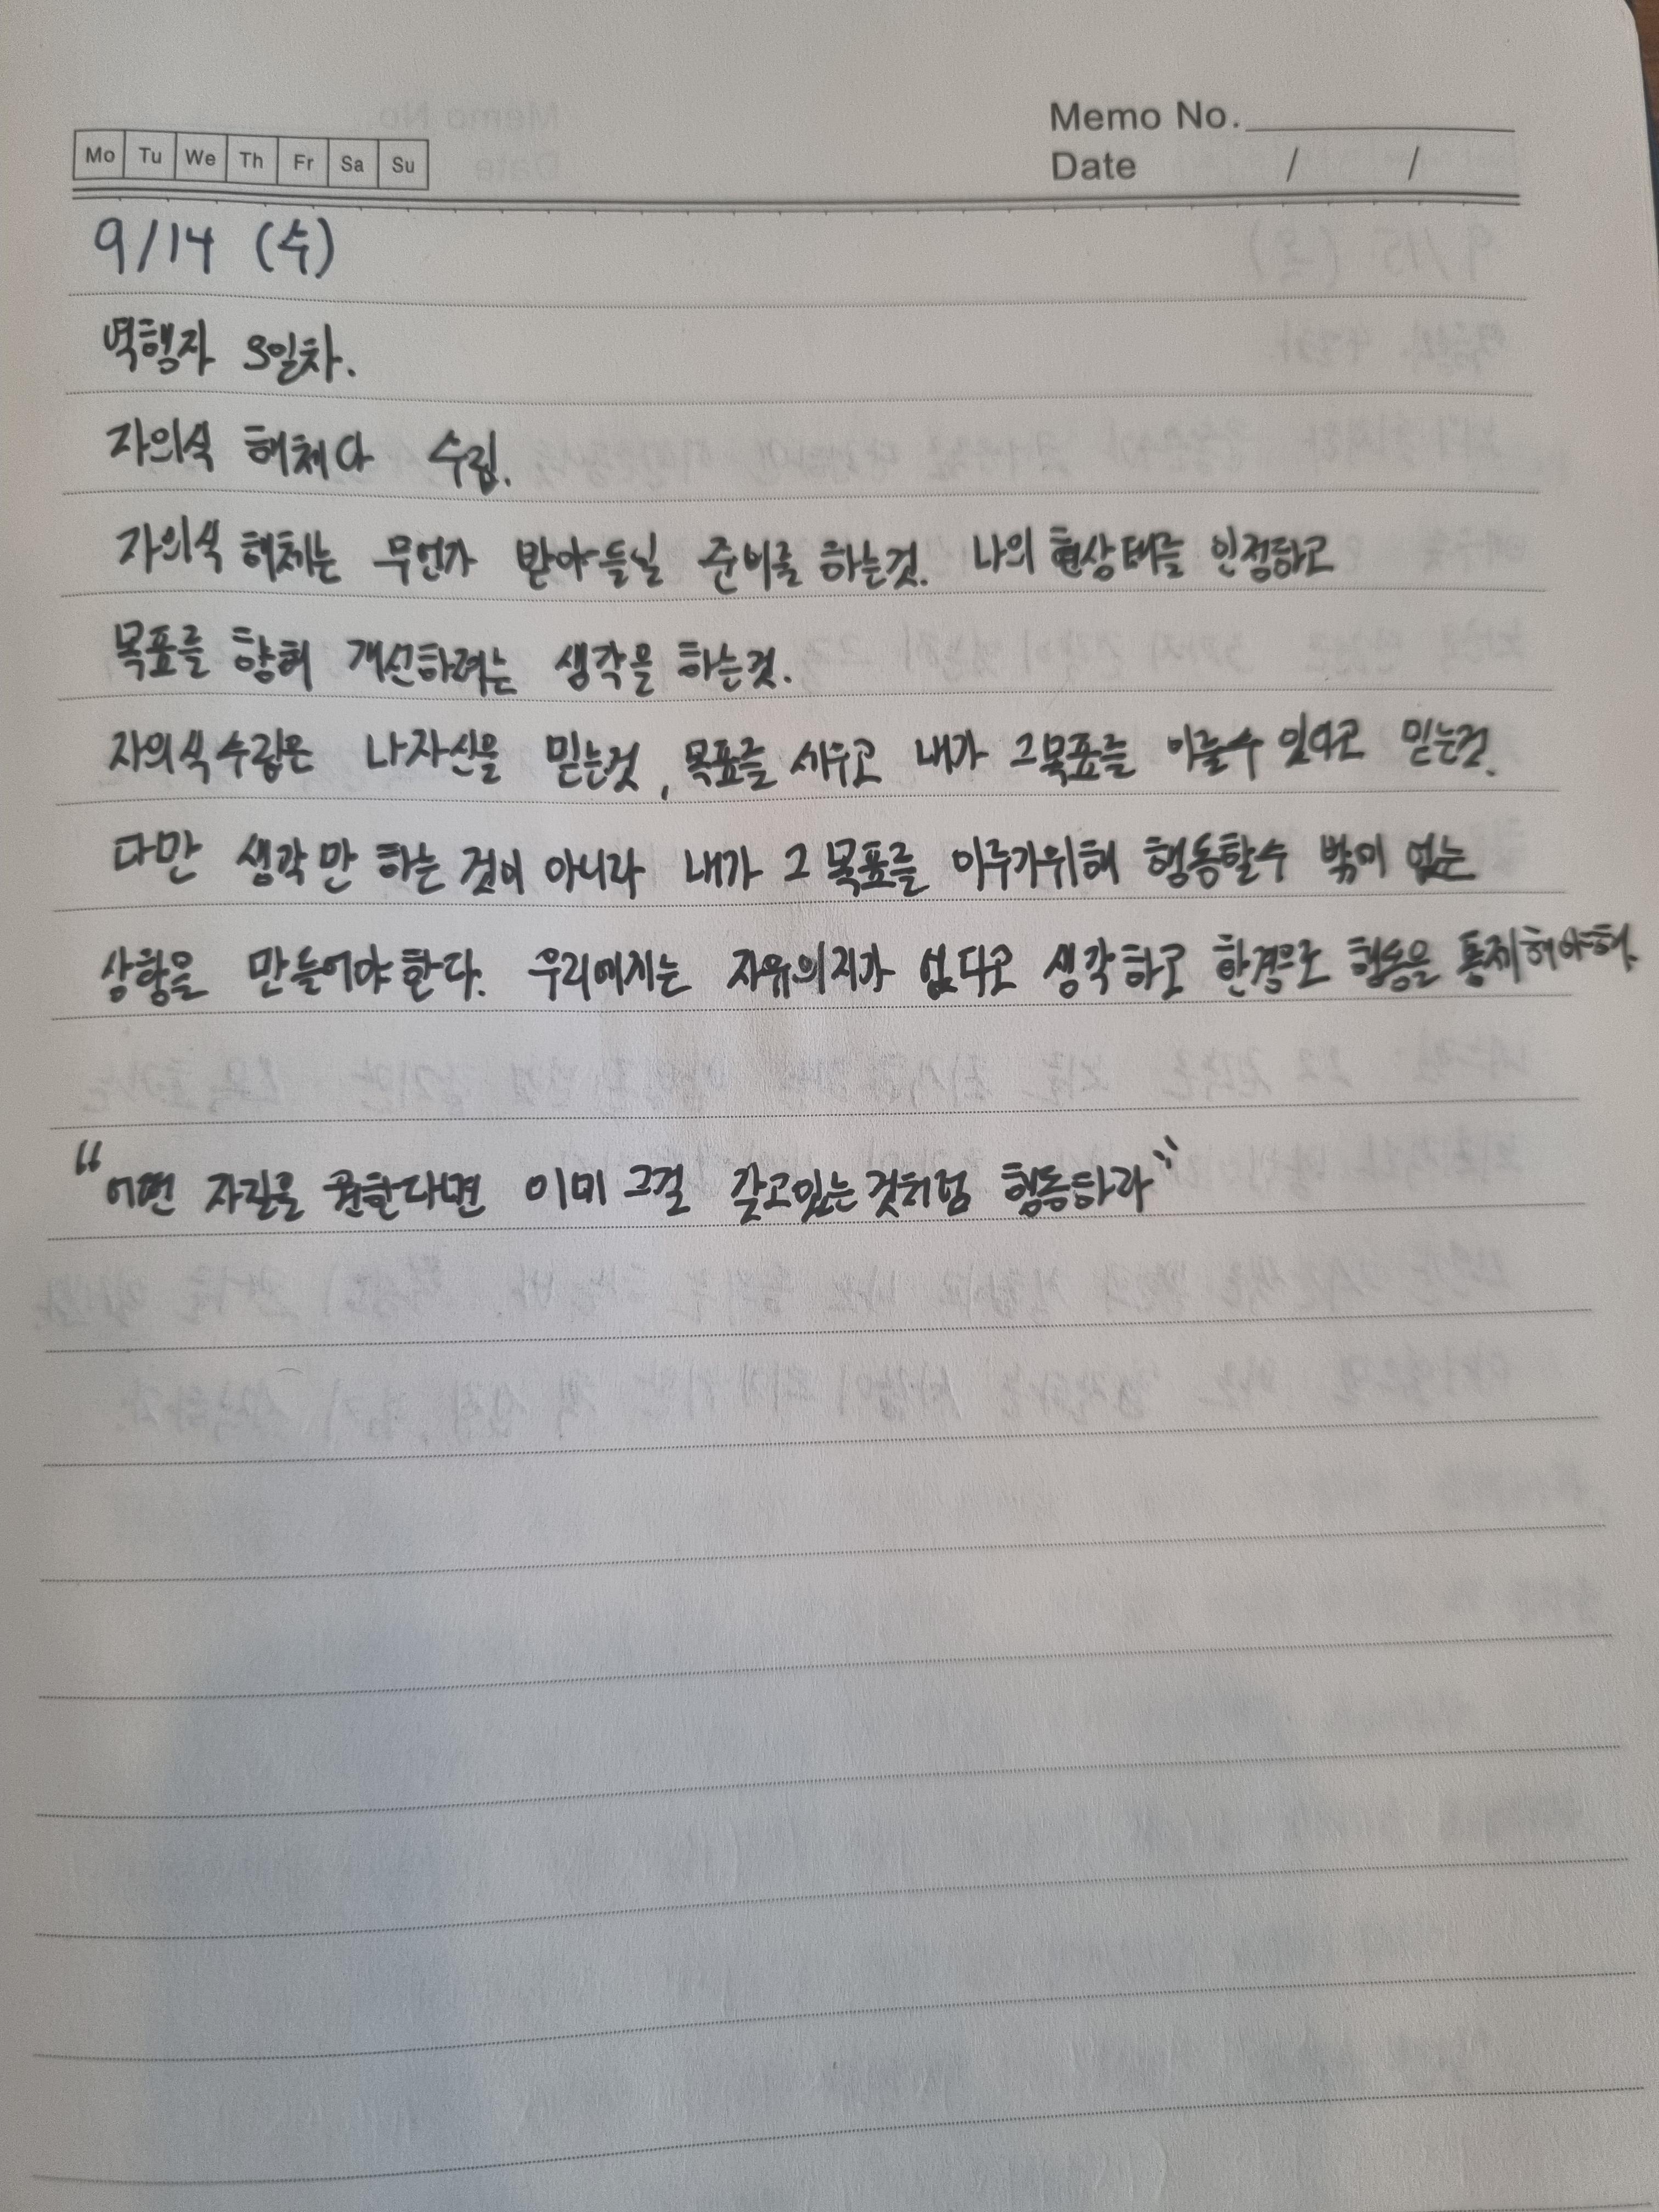 Memo No.
Mo Tu We Th Fr Sa Su
Date / /
9/14 (수)
역행자 3일차.
자의식 해체와 수립.
자의식 해체는 무언가 받아들일 준비를 하는것. 나의 현상태를 인정하고
목표를 향해 개선하려는 생각을 하는것.
자의식 수립은 나자신을 믿는것, 목표를 세우고 내가 그목표를 이룰수 있다고 믿는것.
다만 생각만 하는 것이 아니라 내가 그 목표를 이루기위해 행동할수 밖에 없는
상황을 만들어야한다. 우리에게는 자유의지가 없다고 생각하고 환경으로 행동을 통제해야해.
“어떤 자질을 원한다면 이미 그걸 갖고있는것처럼 행동하라”